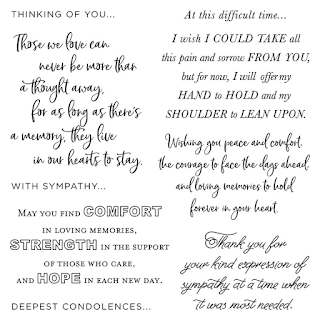 THINKING OF YOU...
Those we love can
never be more than
a thought away,
for as long as there's
a memory, they live
in our hearts to stay.
WITH SYMPATHY...
MAY YOU FIND COMFORT
IN LOVING MEMORIES,
STRENGTH IN THE SUPPORT
OF THOSE WHO CARE,
AND HOPE IN EACH NEW DAY.
DEEPEST CONDOLENCES...
At this difficult time...
I wish I COULD TAKE all
this pain and sorrow FROM YOU,
but for now, I will offer my
HAND to HOLD and my
SHOULDER to LEAN UPON.
Wishing you peace and comfort,
the courage to face the days ahead
and loving memories to hold
forever in your heart.
Thank you for
your kind expression of
sympathy at a time when
it was most needed.